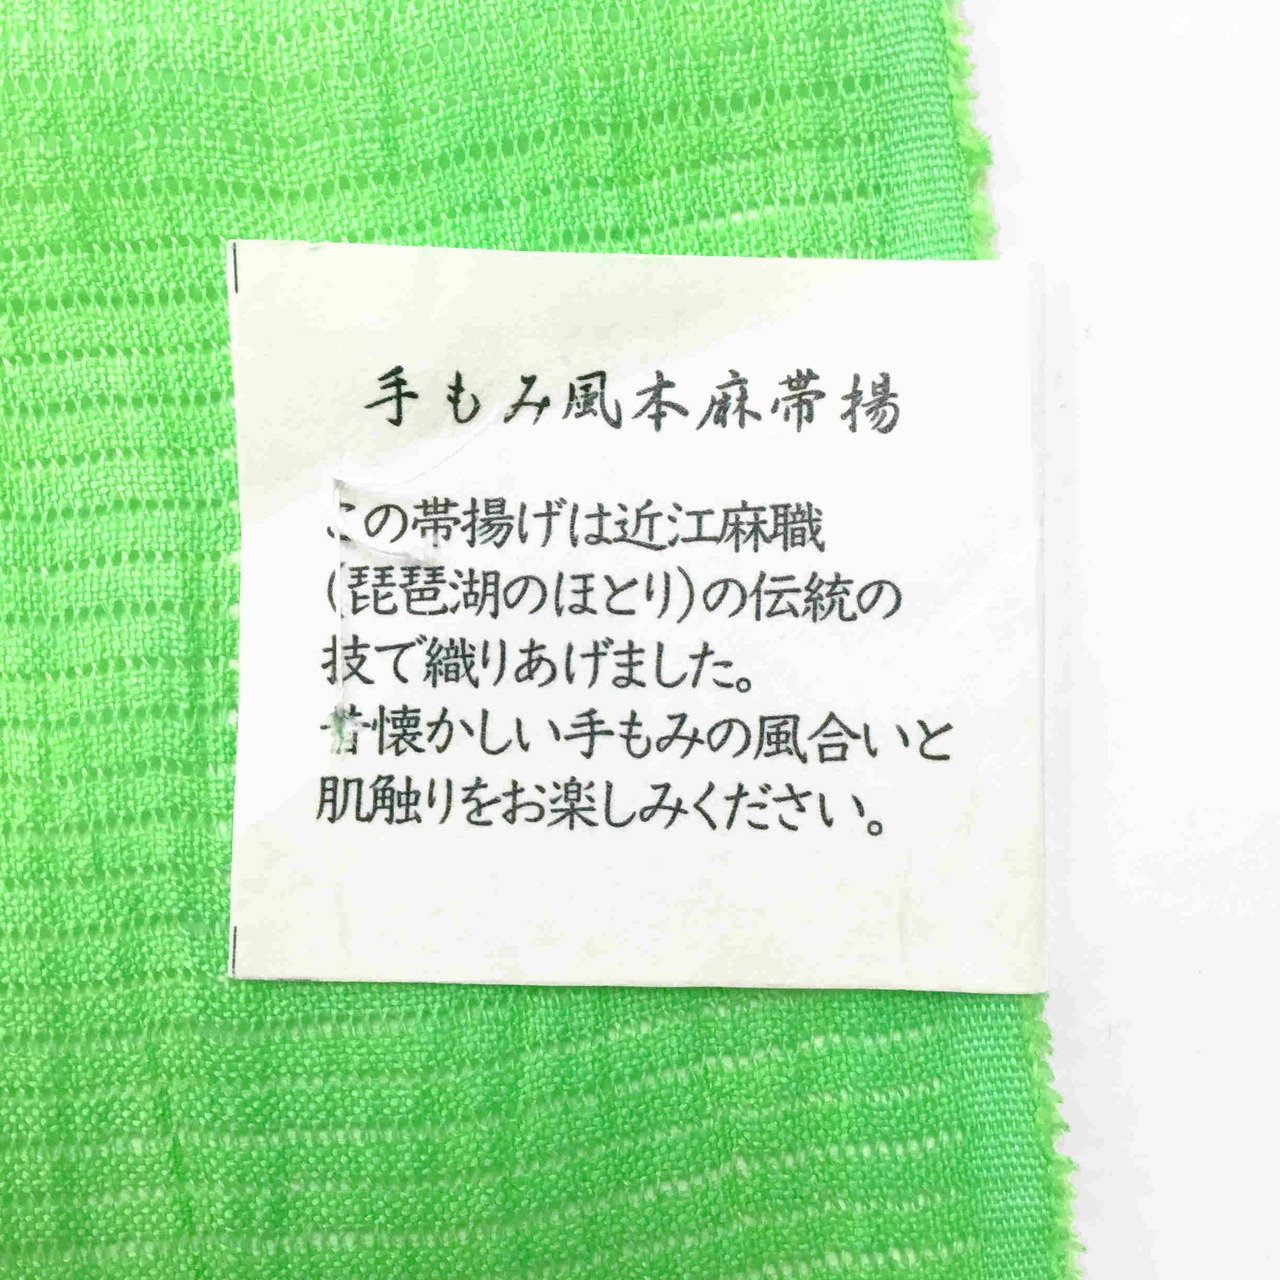 手もみ風本麻帯揚
この帯揚げは近江麻職
(琵琶湖のほとり)の伝統の
技で織りあげました。
昔懐かしい手もみの風合いと
肌触りをお楽しみください。